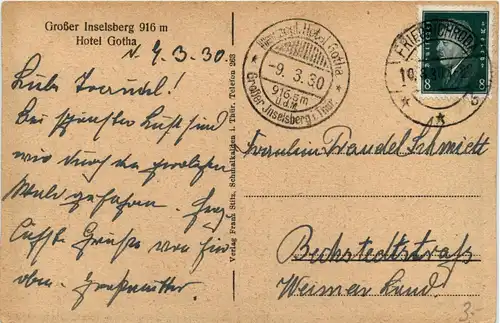 Großer Inselsberg 916 m
Hotel Gotha
9.3.30.
Liebe Traudel!
Bei schönster Luft sind
wir durch den
Wald gefahren. Herz
Grüße von hier
oben. Großmutter.
Verlag Franz Stitz, Schmalkalden i. Thür. Telefon 263
Hotel Gotha
-9.3.30
916,5m
ü.d.M.
Großer Inselsberg i. Thür.
FRIEDRICHRODA
8 8
Fräulein Traudel Schmidt
Bechstedtstraß
Weimar Land.
3.-